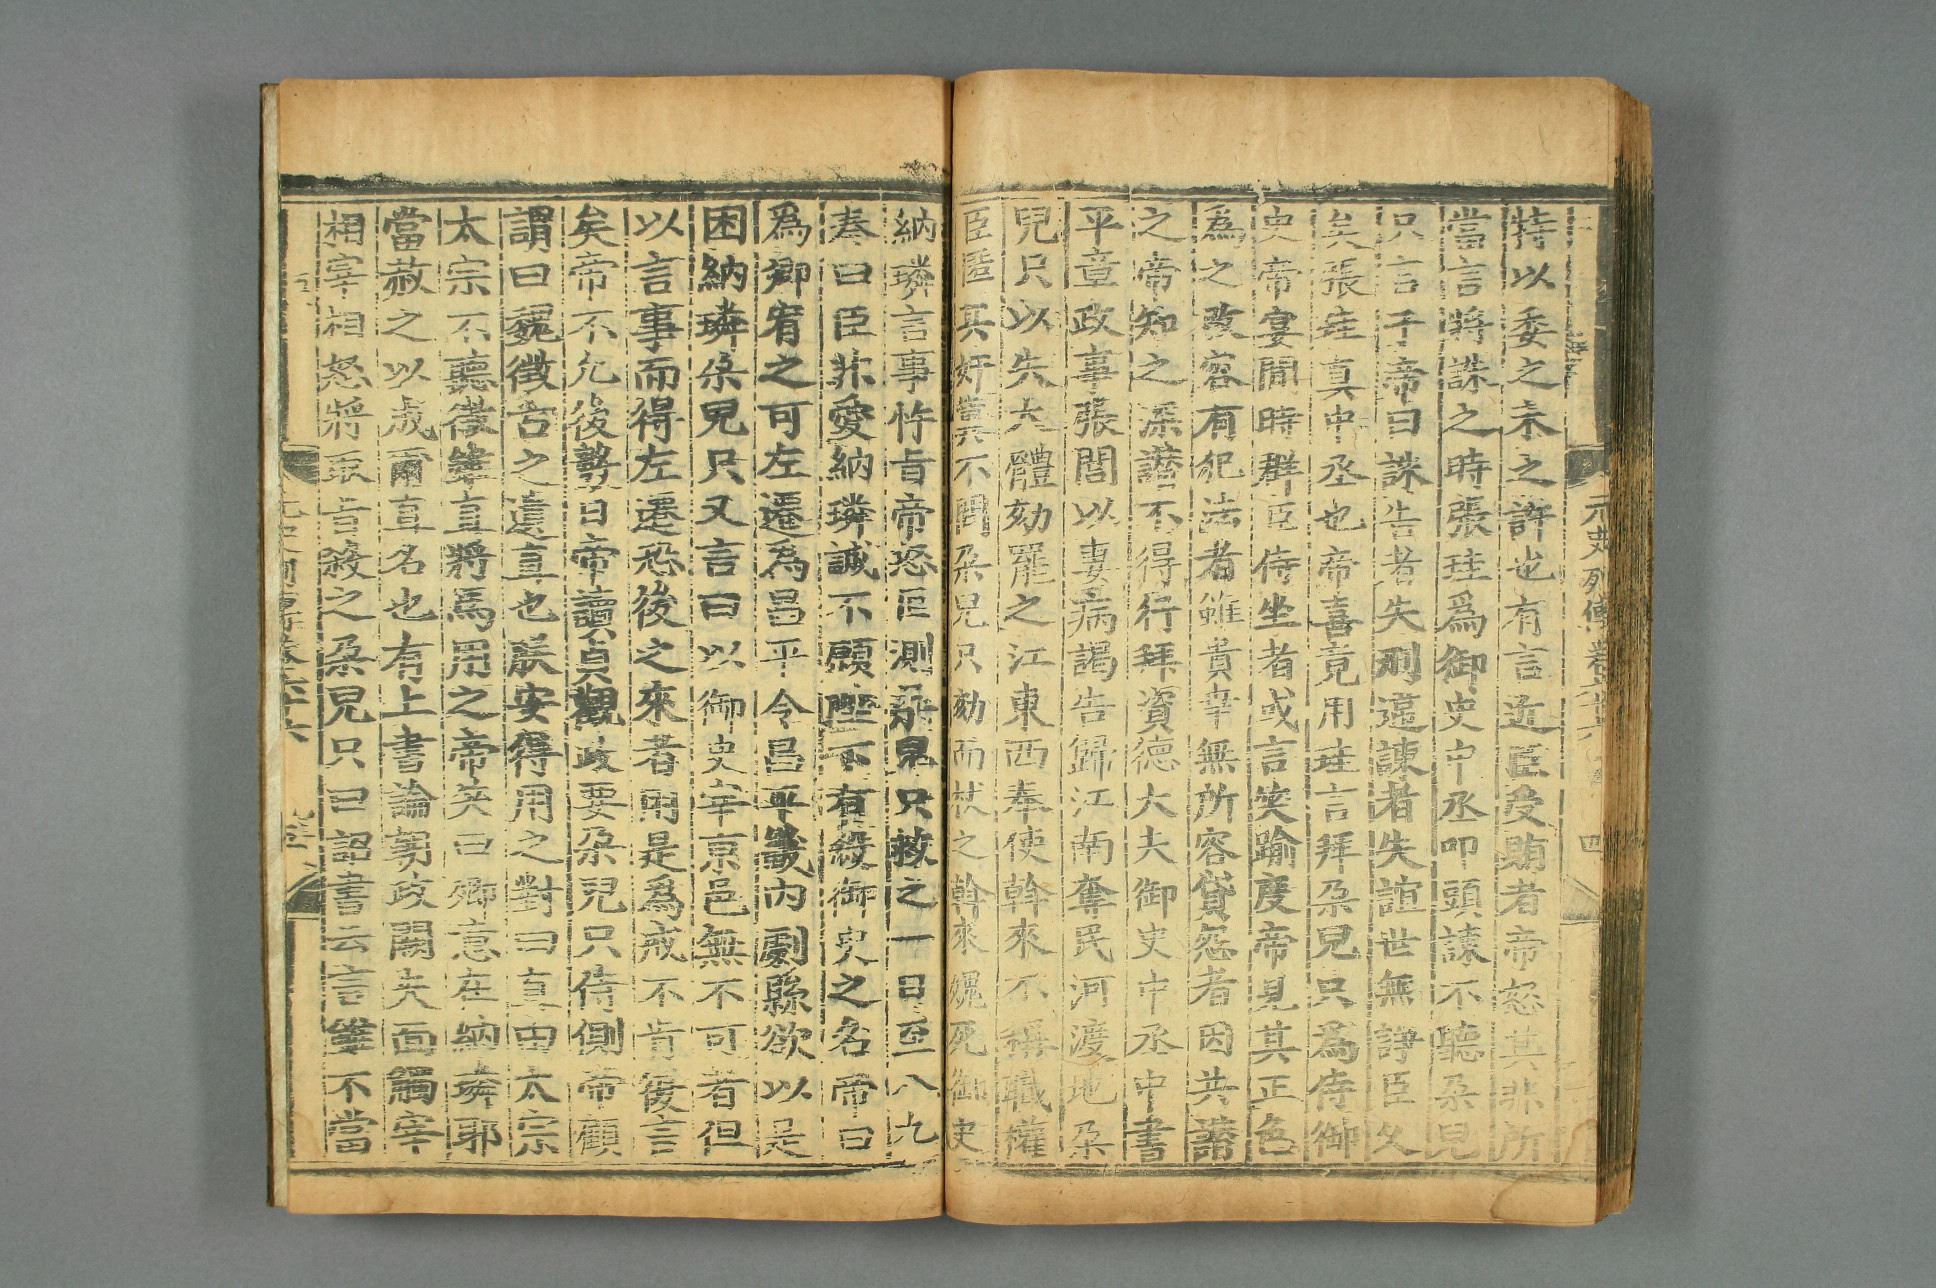 元史列傳卷六十六 四
特以委之未之許也有言近臣受賄者帝怒其非所
當言將誅之時張珪爲御史中丞叩頭諫不聽朶兒
只言于帝曰誅告者失刑違諫者失誼世無諍臣久
矣張珪真中丞也帝喜竟用珪言拜朶兒只爲侍御
史帝宴閒時群臣侍坐者或言笑踰度帝見其正色
爲之改容有犯法者雖貴幸無所容貸怨者因共譖
之帝知之深譖不得行拜資德大夫御史中丞中書
平章政事張閭以妻病謁告歸江南奪民河渡地朶
兒只以失大體劾罷之江東西奉使斡來不稱職權
臣匿其奸冀不問朶兒只劾而杖之斡來媿死御史
納璘言事忤旨帝怒叵測朶兒只救之一日至八九
奏曰臣非愛納璘誠不願陛下有殺御史之名帝曰
爲卿宥之可左遷爲昌平令昌平畿內劇縣欲以是
困納璘朶兒只又言曰以御史宰京邑無不可者但
以言事而得左遷恐後之來者用是爲戒不肯復言
矣帝不允後數日帝讀貞觀政要朶兒只侍側帝顧
謂曰魏徵古之遺直也朕安得用之對曰直由太宗
太宗不聽徵雖直將焉用之帝笑曰卿意在納璘耶
當赦之以成爾直名也有上書論朝政闕失面觸宰
相宰相怒將取旨殺之朶兒只曰詔書云言雖不當